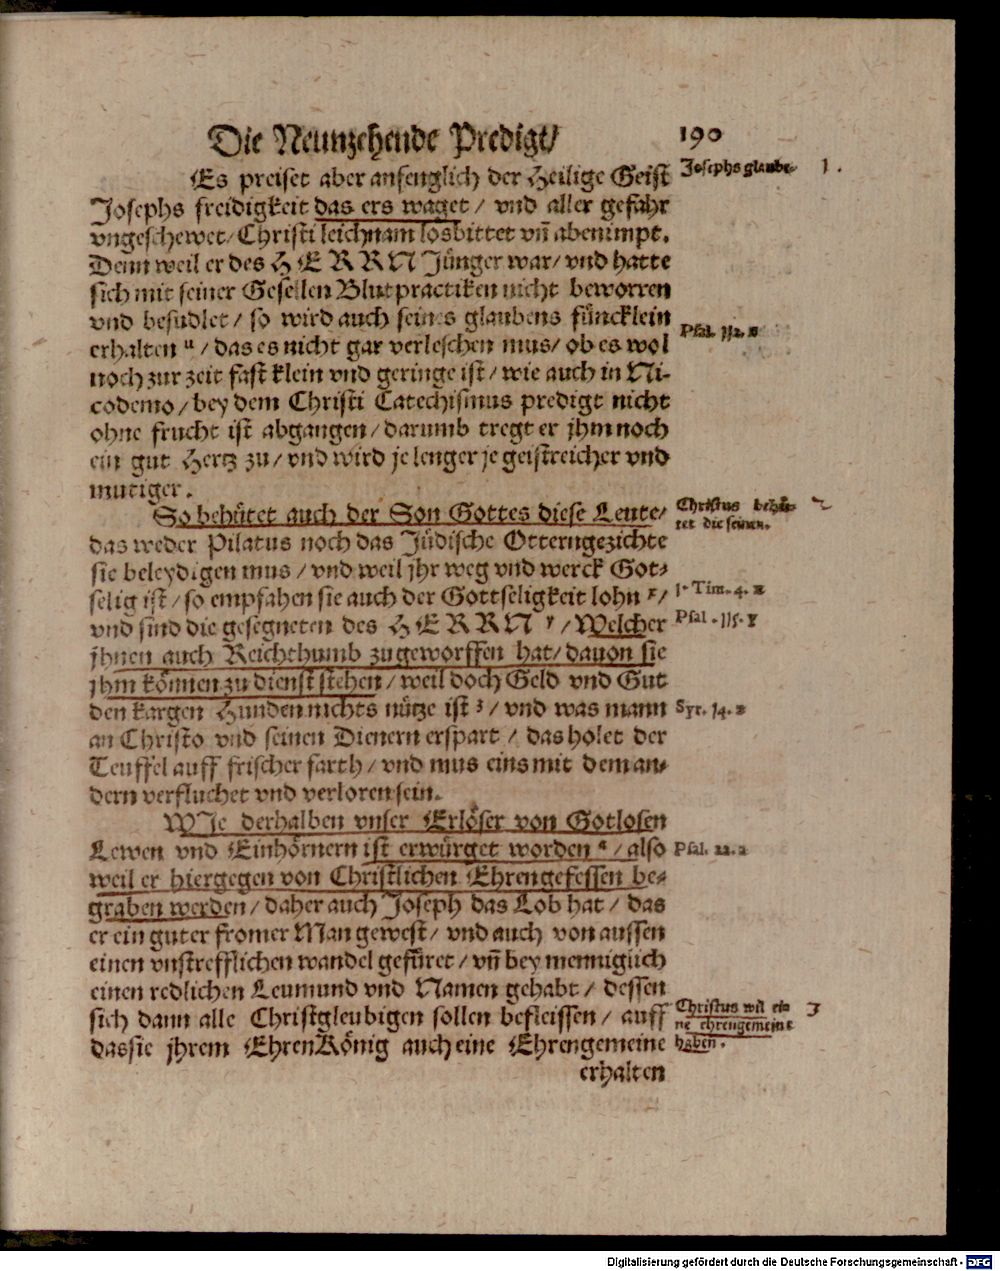 Die Neunzehende Predigt/ 190
Es preiset aber anfenglich der Heilige Geist
Josephs glaube. 1.
Josephs freidigkeit das ers waget / vnd aller gefahr
vngeschewet/ Christi leichnam losbittet vn̄ abenimpt.
Denn weil er des HERRN Jünger war/ vnd hatte
sich mit seiner Gesellen Blutpractiken nicht beworren
vnd besudlet / so wird auch seines glaubens füncklein
Psal. 112. u
erhalten u / das es nicht gar verleschen mus/ ob es wol
noch zur zeit fast klein vnd geringe ist / wie auch in Ni-
codemo / bey dem Christi Catechismus predigt nicht
ohne frucht ist abgangen / darumb tregt er jhm noch
ein gut Hertz zu / vnd wird je lenger je geistreicher vnd
mutiger.
So behütet auch der Son Gottes diese Leute/
Christus behü-
tet die seinen. 2
das weder Pilatus noch das Jüdische Otterngezichte
sie beleydigen mus / vnd weil jhr weg vnd werck Got-
selig ist / so empfahen sie auch der Gottseligkeit lohn x /
1. Tim. 4. x
vnd sind die gesegneten des HERRN y / Welcher
Psal. 115. y
jhnen auch Reichthumb zugeworffen hat / dauon sie
jhm können zu dienst stehen / weil doch Geld vnd Gut
den kargen Hunden nichts nütze ist z / vnd was mann
Syr. 14. z
an Christo vnd seinen Dienern erspart / das holet der
Teuffel auff frischer farth / vnd mus eins mit dem an-
dern verfluchet vnd verloren sein.
WJe derhalben vnser Erlöser von Gotlosen
Lewen vnd Einhörnern ist erwürget worden a / also
Psal. 22. a
weil er hiergegen von Christlichen Ehrengefessen be-
graben werden / daher auch Joseph das Lob hat / das
er ein guter fromer Man gewest / vnd auch von aussen
einen vnstrefflichen wandel gefüret / vn̄ bey menniglich
einen redlichen Leumund vnd Namen gehabt / dessen
sich dann alle Christgleubigen sollen befleissen / auff
Christus wil ei-
ne ehrengemeine
haben. 3
das sie jhrem EhrenKönig auch eine Ehrengemeine
erhalten
Digitalisierung gefördert durch die Deutsche Forschungsgemeinschaft - DFG